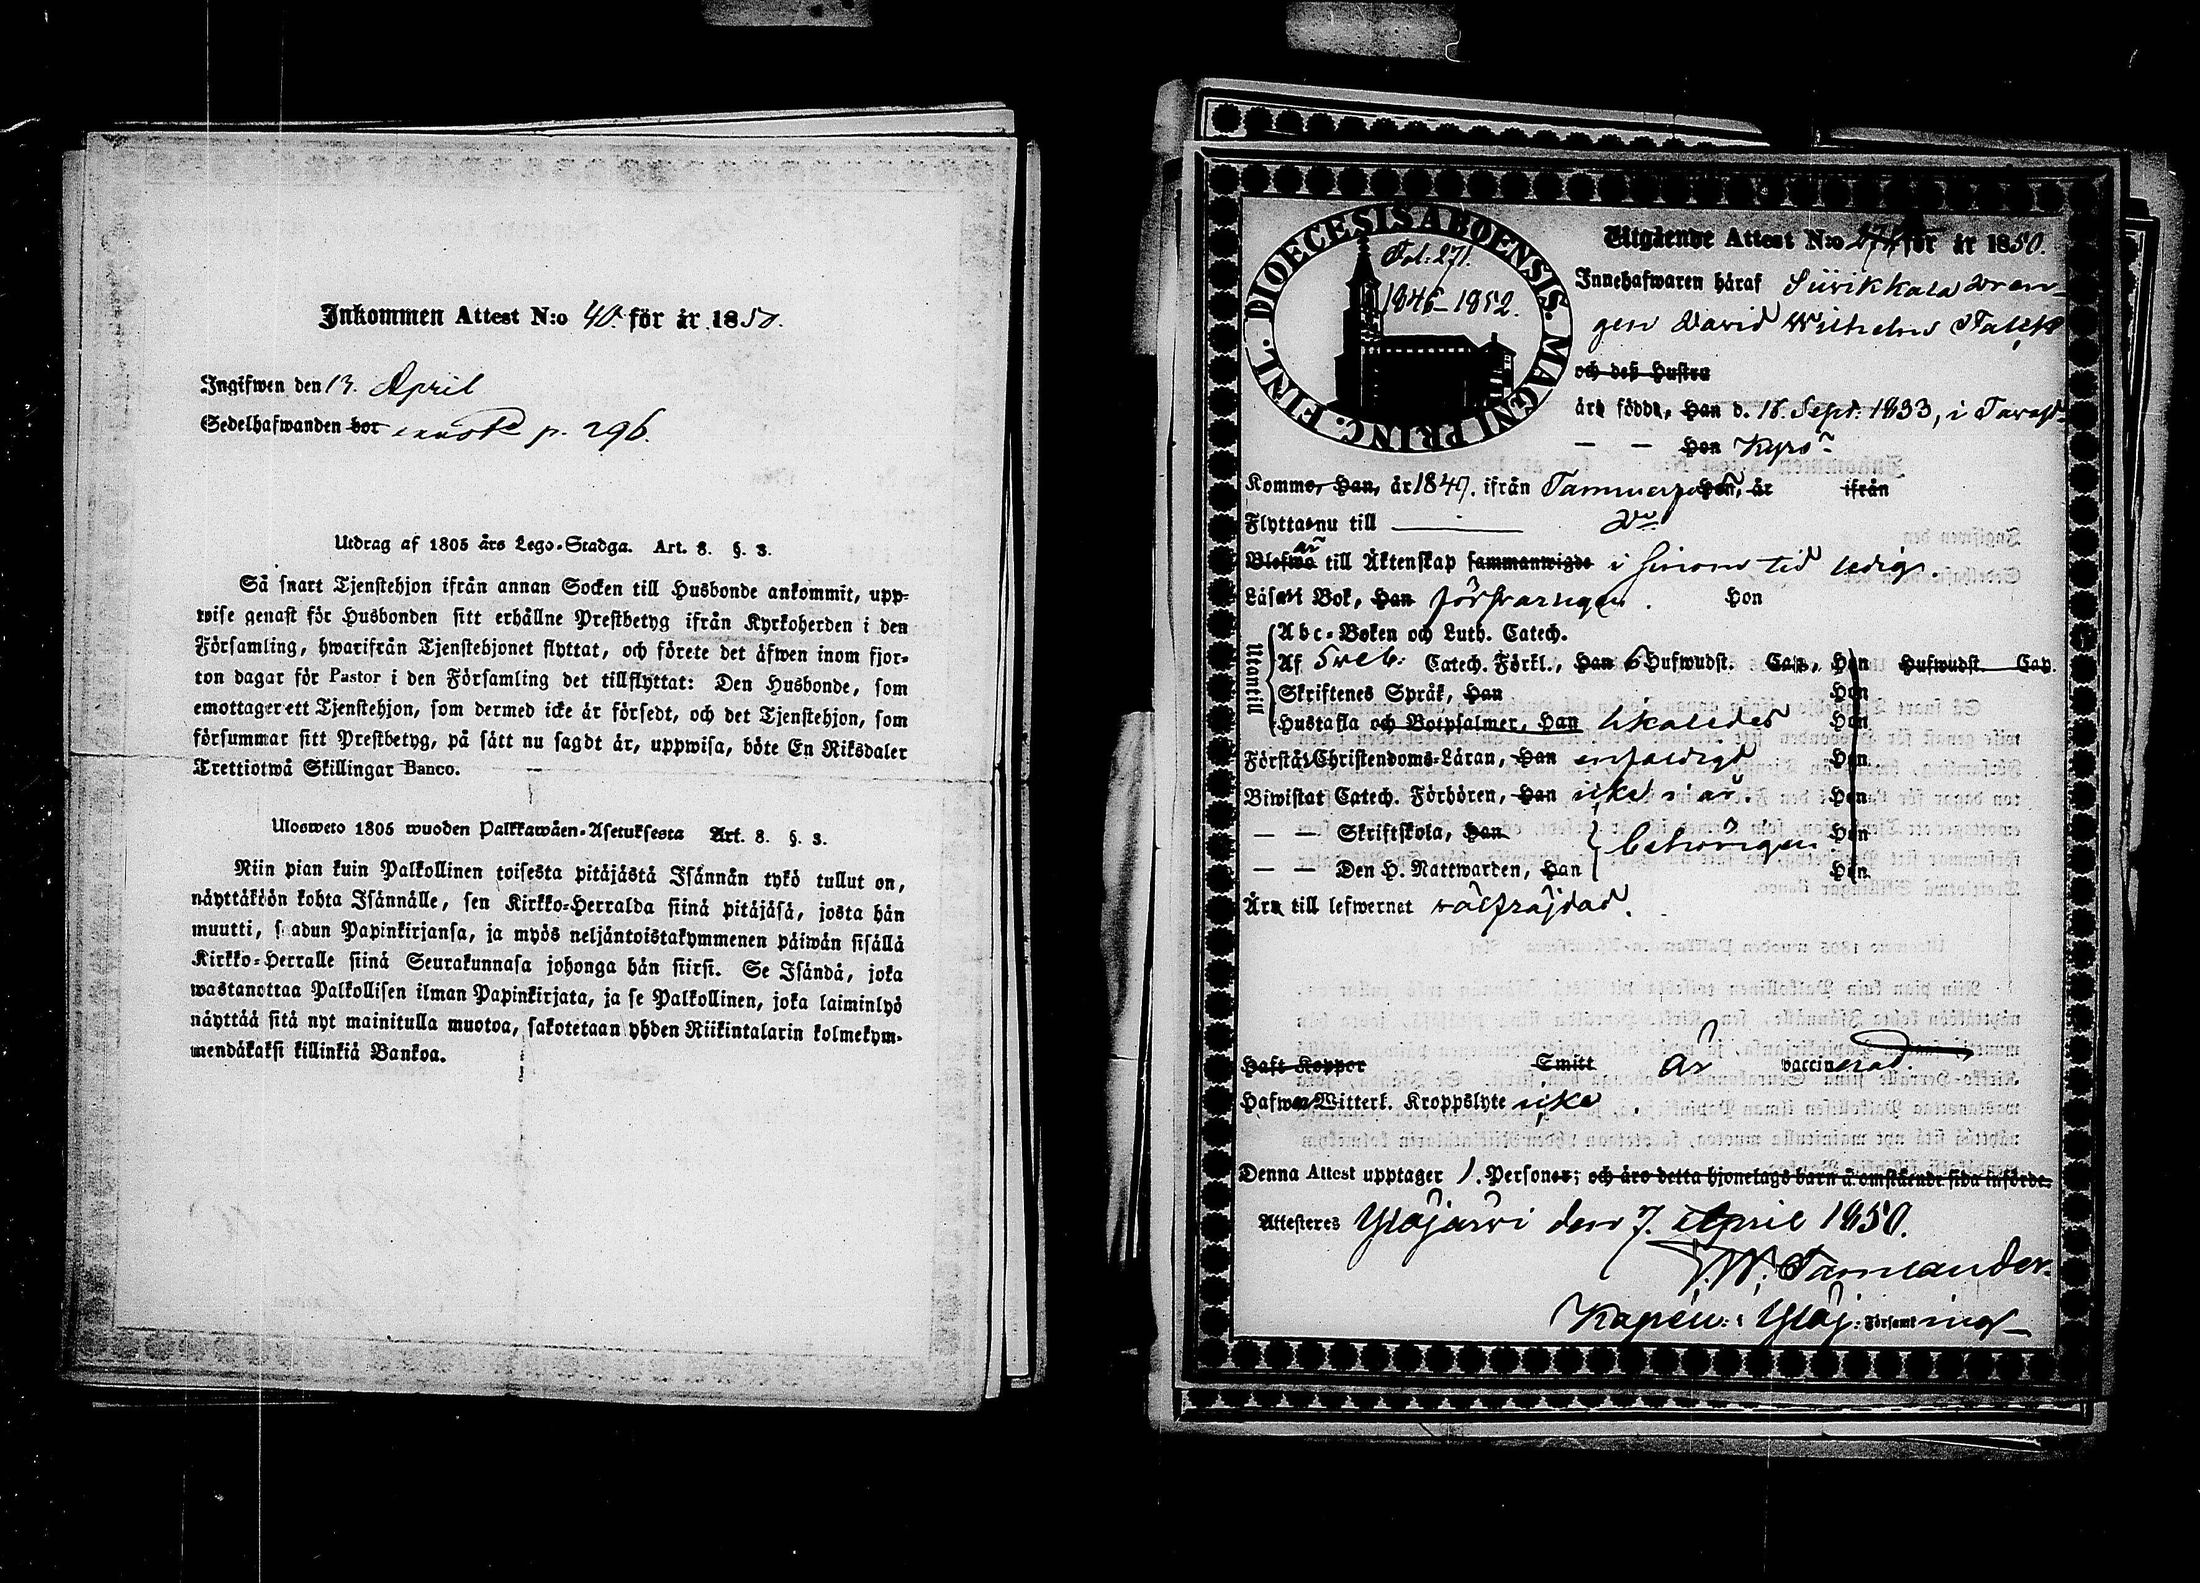 Inkommen Attest N:o 40. för år 1850.
Ingifwen den 13. April
Sedelhafwanden bor p. 296.
Utdrag af 1805 års Lego-Stadga. Art. 8. §. 3.
Så snart Tjenstehjon ifrån annan Socken till Husbonde ankommit, upp-
wise genast för Husbonden sitt erhållne Prestbetyg ifrån Kyrkoherden i den
Församling, hwarifrån Tjenstehjonet flyttat, och förete det äfwen inom fjor-
ton dagar för Pastor i den Församling det tillflyttat: Den Husbonde, som
emottager ett Tjenstehjon, som dermed icke är försedt, och det Tjenstehjon, som
försummar sitt Prestbetyg, på sätt nu sagdt är, uppwisa, böte En Riksdaler
Trettiotwå Skillingar Banco.
Uloswето 1805 wuoden Palkkawäen-Asetuksesta Art. 8. §. 3.
Niin pian kuin Palkollinen toisesta pitäjästä Isännän tykö tullut on,
näyttäköön kohta Isännälle, sen Kirkko-Herralda siinä pitäjäsä, josta hän
muutti, saadun Papinkirjansa, ja myös neljäntoistakymmenen päiwän sisällä
Kirkko-Herralle siinä Seurakunnasa johonga hän siirsi. Se Isändä, joka
wastanottaa Palkollisen ilman Papinkirjata, ja se Palkollinen, joka laiminlyö
näyttää sitä nyt mainitulla muotoa, sakotetaan yhden Riikintalarin kolmekym-
mendäkaksi killinkiä Bankoa.
DIOECESIS ABOENSIS. MAGNI PRINC. FINL.
Fol: 271.
1846-1852.
Utgående Attest N:o för år 1850.
Innehafwaren häraf Siivikkala dren-
gen David Wilhelm
och deß Hustru
äro födde, Han d. 18. Sept. 1833, i Tavast-
— — Hon Kyro
Kommo, Han, år 1849. ifrån Tammerfors Hon, år ifrån
Flytta nu till ———
Blefwo är till Äktenskap sammanwigde i sinom tid ledig.
Läsa i Bok, Han försvarligen. Hon
Utantill
Abc-Boken och Luth. Catech.
Af Sveb: Catech. Förkl., Han 6 Hufwudst. Cap., Hon Hufwudst. Cap.
Skriftenes Språk, Han Hon
Hustafla och Botpsalmer, Han likaledes Hon
Förstå Christendoms-Läran, Han enfaldigt Hon
Biwistat Catech. Förhören, Han icke i år. Hon
— — Skriftskola, Han behörigen. Hon
— — Den H. Nattwarden, Han Hon
Äro till lefwernet wälfräjdad.
Haft Koppor Smitt är vaccinerad.
Hafwa Witterl. Kroppslyte icke.
Denna Attest upptager 1. Personer; och äro detta hjonelags barn å omstående sida införde.
Attesteres Ylöjärvi den 7. April 1850.
Tamlander.
Kapell: i Ylöj: Församling